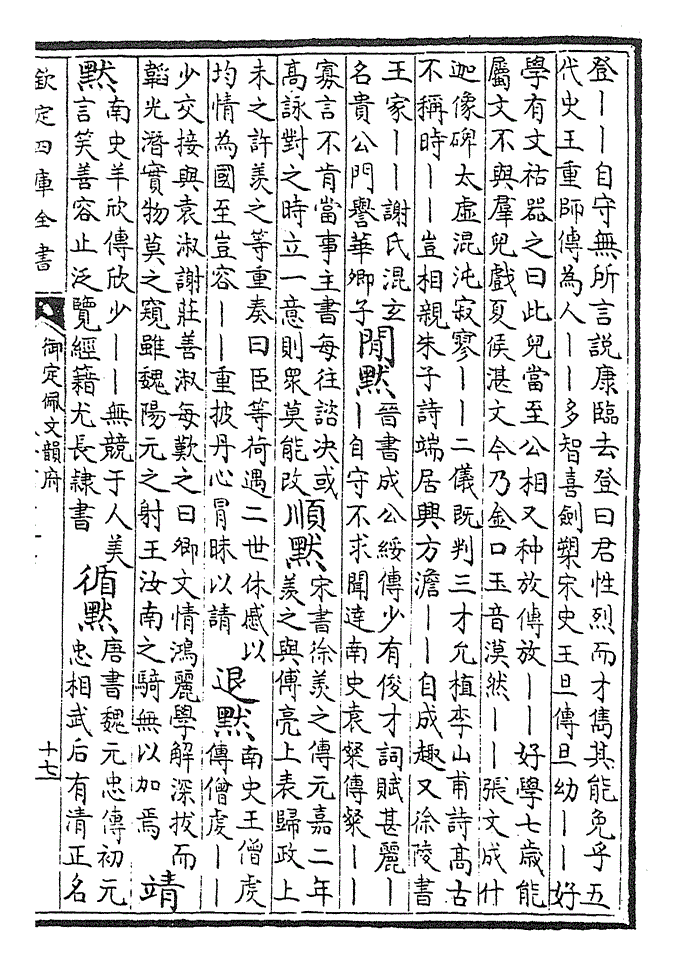 登丨丨自守無所言說康臨去登曰君性烈而才雋其能免乎五
代史王重師傳為人丨丨多智喜劍槊宋史王旦傳旦幼丨丨好
學有文祜器之曰此兒當至公相又种放傳放丨丨好學七歲能
屬文不與羣兒戲夏侯湛文今乃金口玉音漠然丨丨張文成什
迦像碑太虛混沌寂寥丨丨二儀既判三才允植李山甫詩高古
不稱時丨丨豈相親朱子詩端居興方澹丨丨自成趣又徐陵書
王家丨丨謝氏混玄
名貴公門譽華卿子
閒默
晉書成公綏傳少有俊才詞賦甚麗丨
丨自守不求聞達南史袁粲傳粲丨丨
寡言不肯當事主書每往諮决或
高詠對之時立一意則衆莫能改
順默
宋書徐羨之傳元嘉二年
羨之與傅亮上表歸政上
未之許羨之等重奏曰臣等荷遇二世休慼以
均情為國至豈容丨丨重披丹心冒昧以請
退默
南史王僧虔
傳僧虔丨丨
少交接與袁淑謝莊善淑每歎之曰卿文情鴻麗學解深拔而
韜光潛實物莫之窺雖魏陽元之射王汝南之騎無以加焉
靖
默
南史羊欣傳欣少丨丨無競于人美
言笑善容止泛覽經籍尤長隷書
循默
唐書魏元忠傳初元
忠相武后有清正名
欽定四庫全書
御定佩文韻府
十七